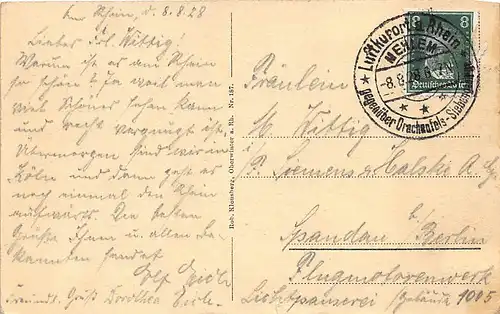 Am Rhein, d. 8.8.28
Liebes Frl. Wittig!
Warum ist es am Rhein
so schön? Ja weil man
viel Schönes sehen kann
und recht vergnügt ist.
Übermorgen sind wir in
Köln und dann geht es
noch einmal den Rhein
aufwärts. Die besten
Grüße Ihnen u. allen Be-
kannten sendet
Freundl. Gruß Dorothea
Rob. Klausberg, Oberwinter a. Rh. Nr. 487.
Luftkurort a. Rhein
MEHLEM
-8.8.28
gegenüber Drachenfels
8 8
Deutsches Reich
Fräulein
M. Wittig
Siemens & Halske A.
b/
Spandau Berlin
Flugmotorenwerk
Lichtpauserei (Gebäude 1005